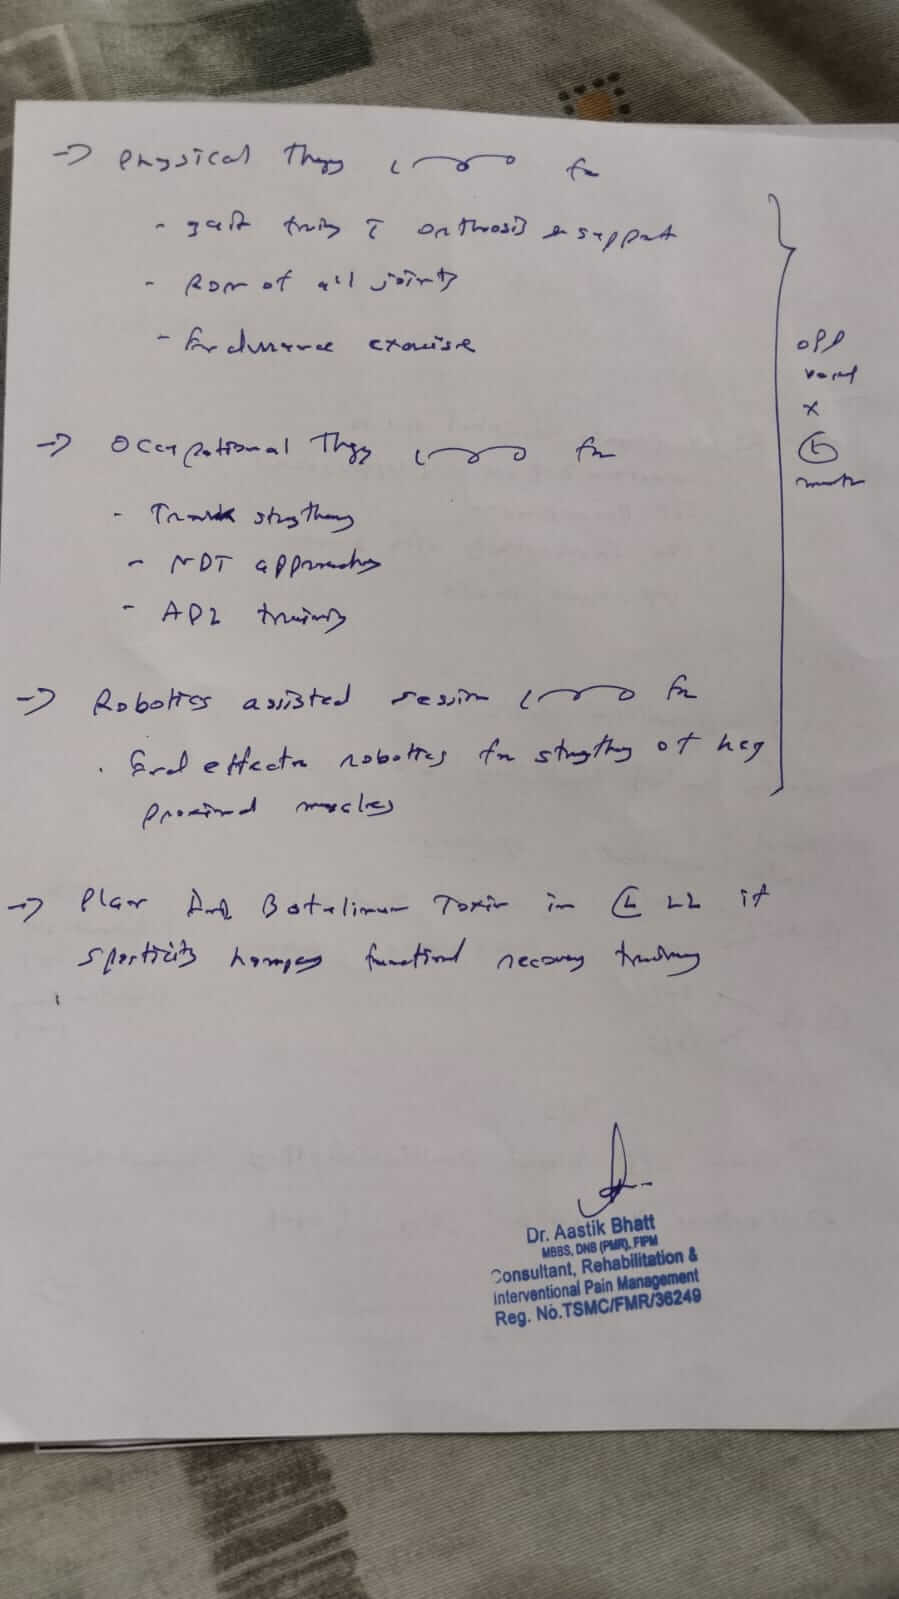 → Physical Thpy for
- gait traing c̄ orthosis & support
- ROM of all joints
- Endurance exercise
→ Occupational Thpy for
- Trunk strgtheng
- NDT approaches
- ADL training
→ Robotics assisted session for
. End effector robotics for strengthg of
proximal muscles
→ Plan Botulinum Toxin in Ⓛ LL if
spasticity hampers functional recovery training
OPD
x
6
month
Dr. Aastik Bhatt
MBBS, DNB (PMR), FIPM
Consultant, Rehabilitation &
Interventional Pain Management
Reg. No.TSMC/FMR/36249